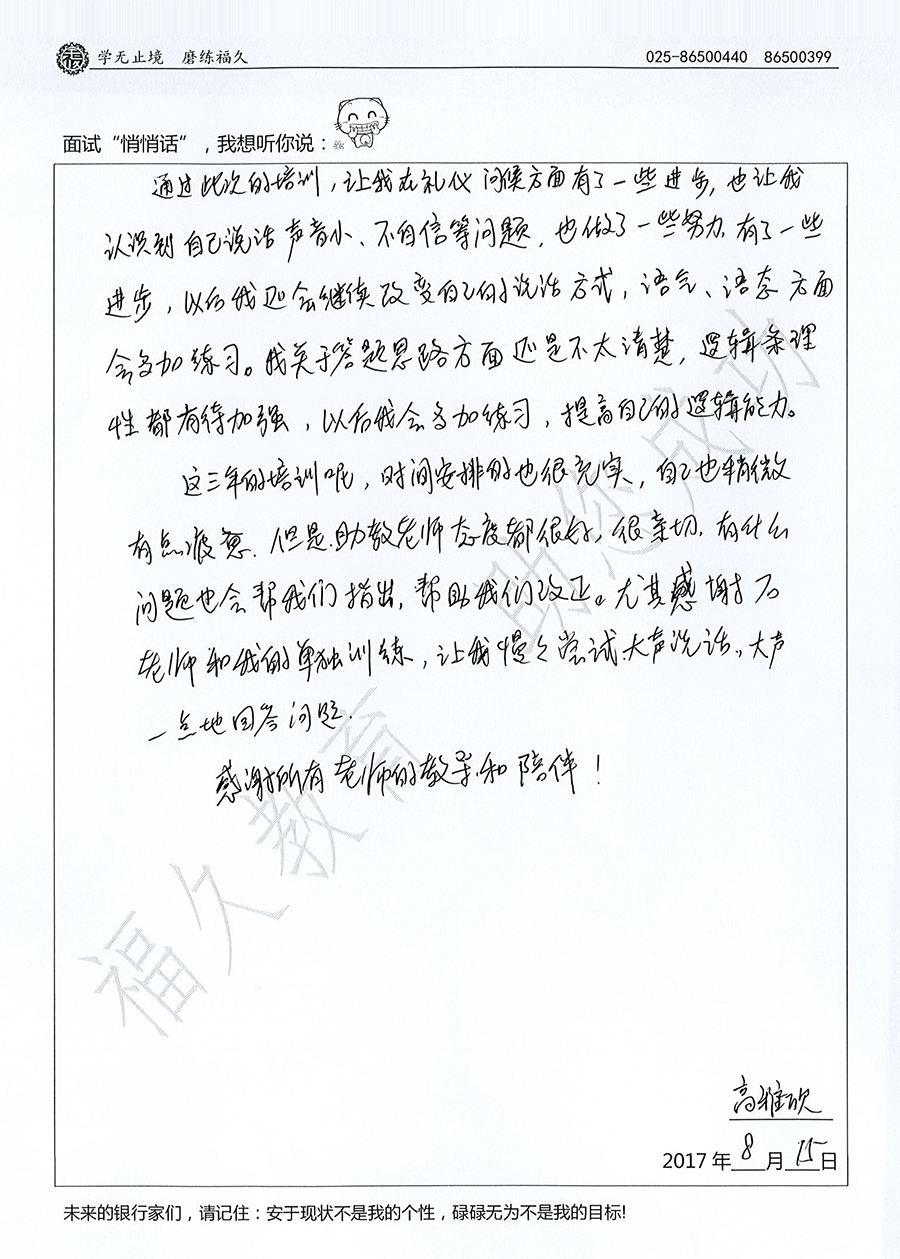 学无止境 磨练福久
025-86500440 86500399
面试“悄悄话”，我想听你说：
通过此次的培训，让我在礼仪问候方面有了一些进步，也让我
认识到自己说话声音小、不自信等问题，也做了一些努力，有了一些
进步，以后我还会继续改变自己的说话方式，语气、语态方面
会多加练习。我关于答题思路方面还是不太清楚，逻辑条理
性都有待加强，以后我会多加练习，提高自己的逻辑能力。
这三年的培训呢，时间安排的也很充实，自己也稍微
有点疲惫．但是助教老师态度都很好，很亲切．有什么
问题也会帮我们指出，帮助我们改正。尤其感谢
老师和我的单独训练，让我慢慢尝试大声说话，大声
一点地回答问题．
感谢所有老师的教导和陪伴！
福久教育 助您成功
高雅
2017年8月15日
未来的银行家们，请记住：安于现状不是我的个性，碌碌无为不是我的目标!